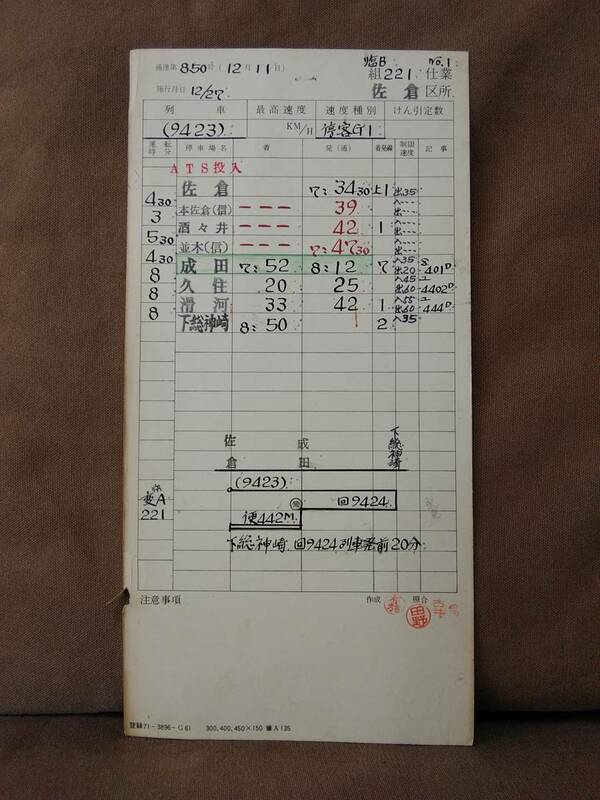 通達第 850号 (12月11日) 臨B No.1
組221仕業
施行月日 12/27 佐倉区所
列車 最高速度 速度種別 けん引定数
(9423) KM/H 停客G1
運転時分 停車場名 着 発(通) 着発線 制限速度 記事
ATS投入
佐倉 7:34 30 上1 出35
4 30
本佐倉(信) --- 39 入--- 出---
3
酒々井 --- 42 1 入--- 出---
5 30
並木(信) --- 7:47 30 入--- 出---
4 30
成田 7:52 8:12 7 入35 出20 401D
8
久住 20 25 入45 出60 4402D
8
滑河 33 42 1 入55 出60 444D
8
下総神崎 8:50 2 入35
佐倉 成田 下総神崎
(9423)
変A 回9424
221 便442M
下総神崎 回9424列車発前20分
注意事項 作成 照合 田野
登録71-3896-G61 300,400,450×150 A135